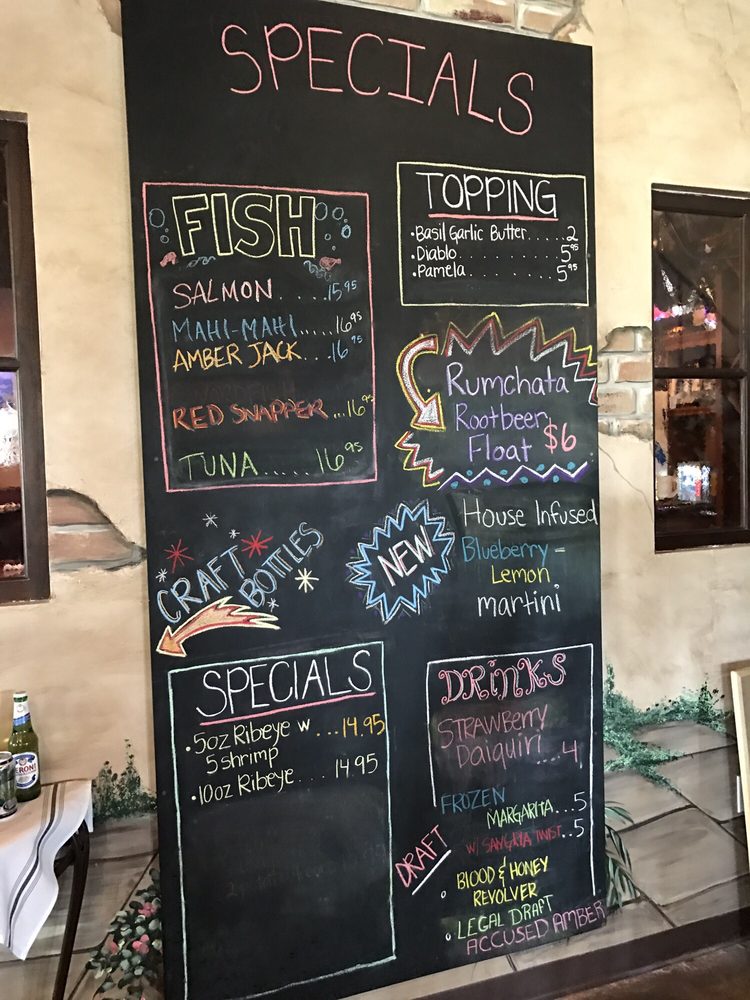 SPECIALS
FISH
SALMON....15.95
MAHI-MAHI.....16.95
AMBER JACK...16.95
RED SNAPPER...16.95
TUNA.....16.95
TOPPING
•Basil Garlic Butter.....2
•Diablo.........5.95
•Pamela.........5.95
Rumchata
Rootbeer
Float $6
CRAFT
BOTTLES
NEW
House Infused
Blueberry-
Lemon
martini
SPECIALS
•5oz Ribeye w...14.95
5 shrimp
•10oz Ribeye....14.95
DRINKS
STRAWBERRY
Daiquiri...4
FROZEN
MARGARITA...5
W/ SANGRIA TWIST..5
DRAFT
BLOOD & HONEY
REVOLVER
LEGAL DRAFT
ACCUSED AMBER